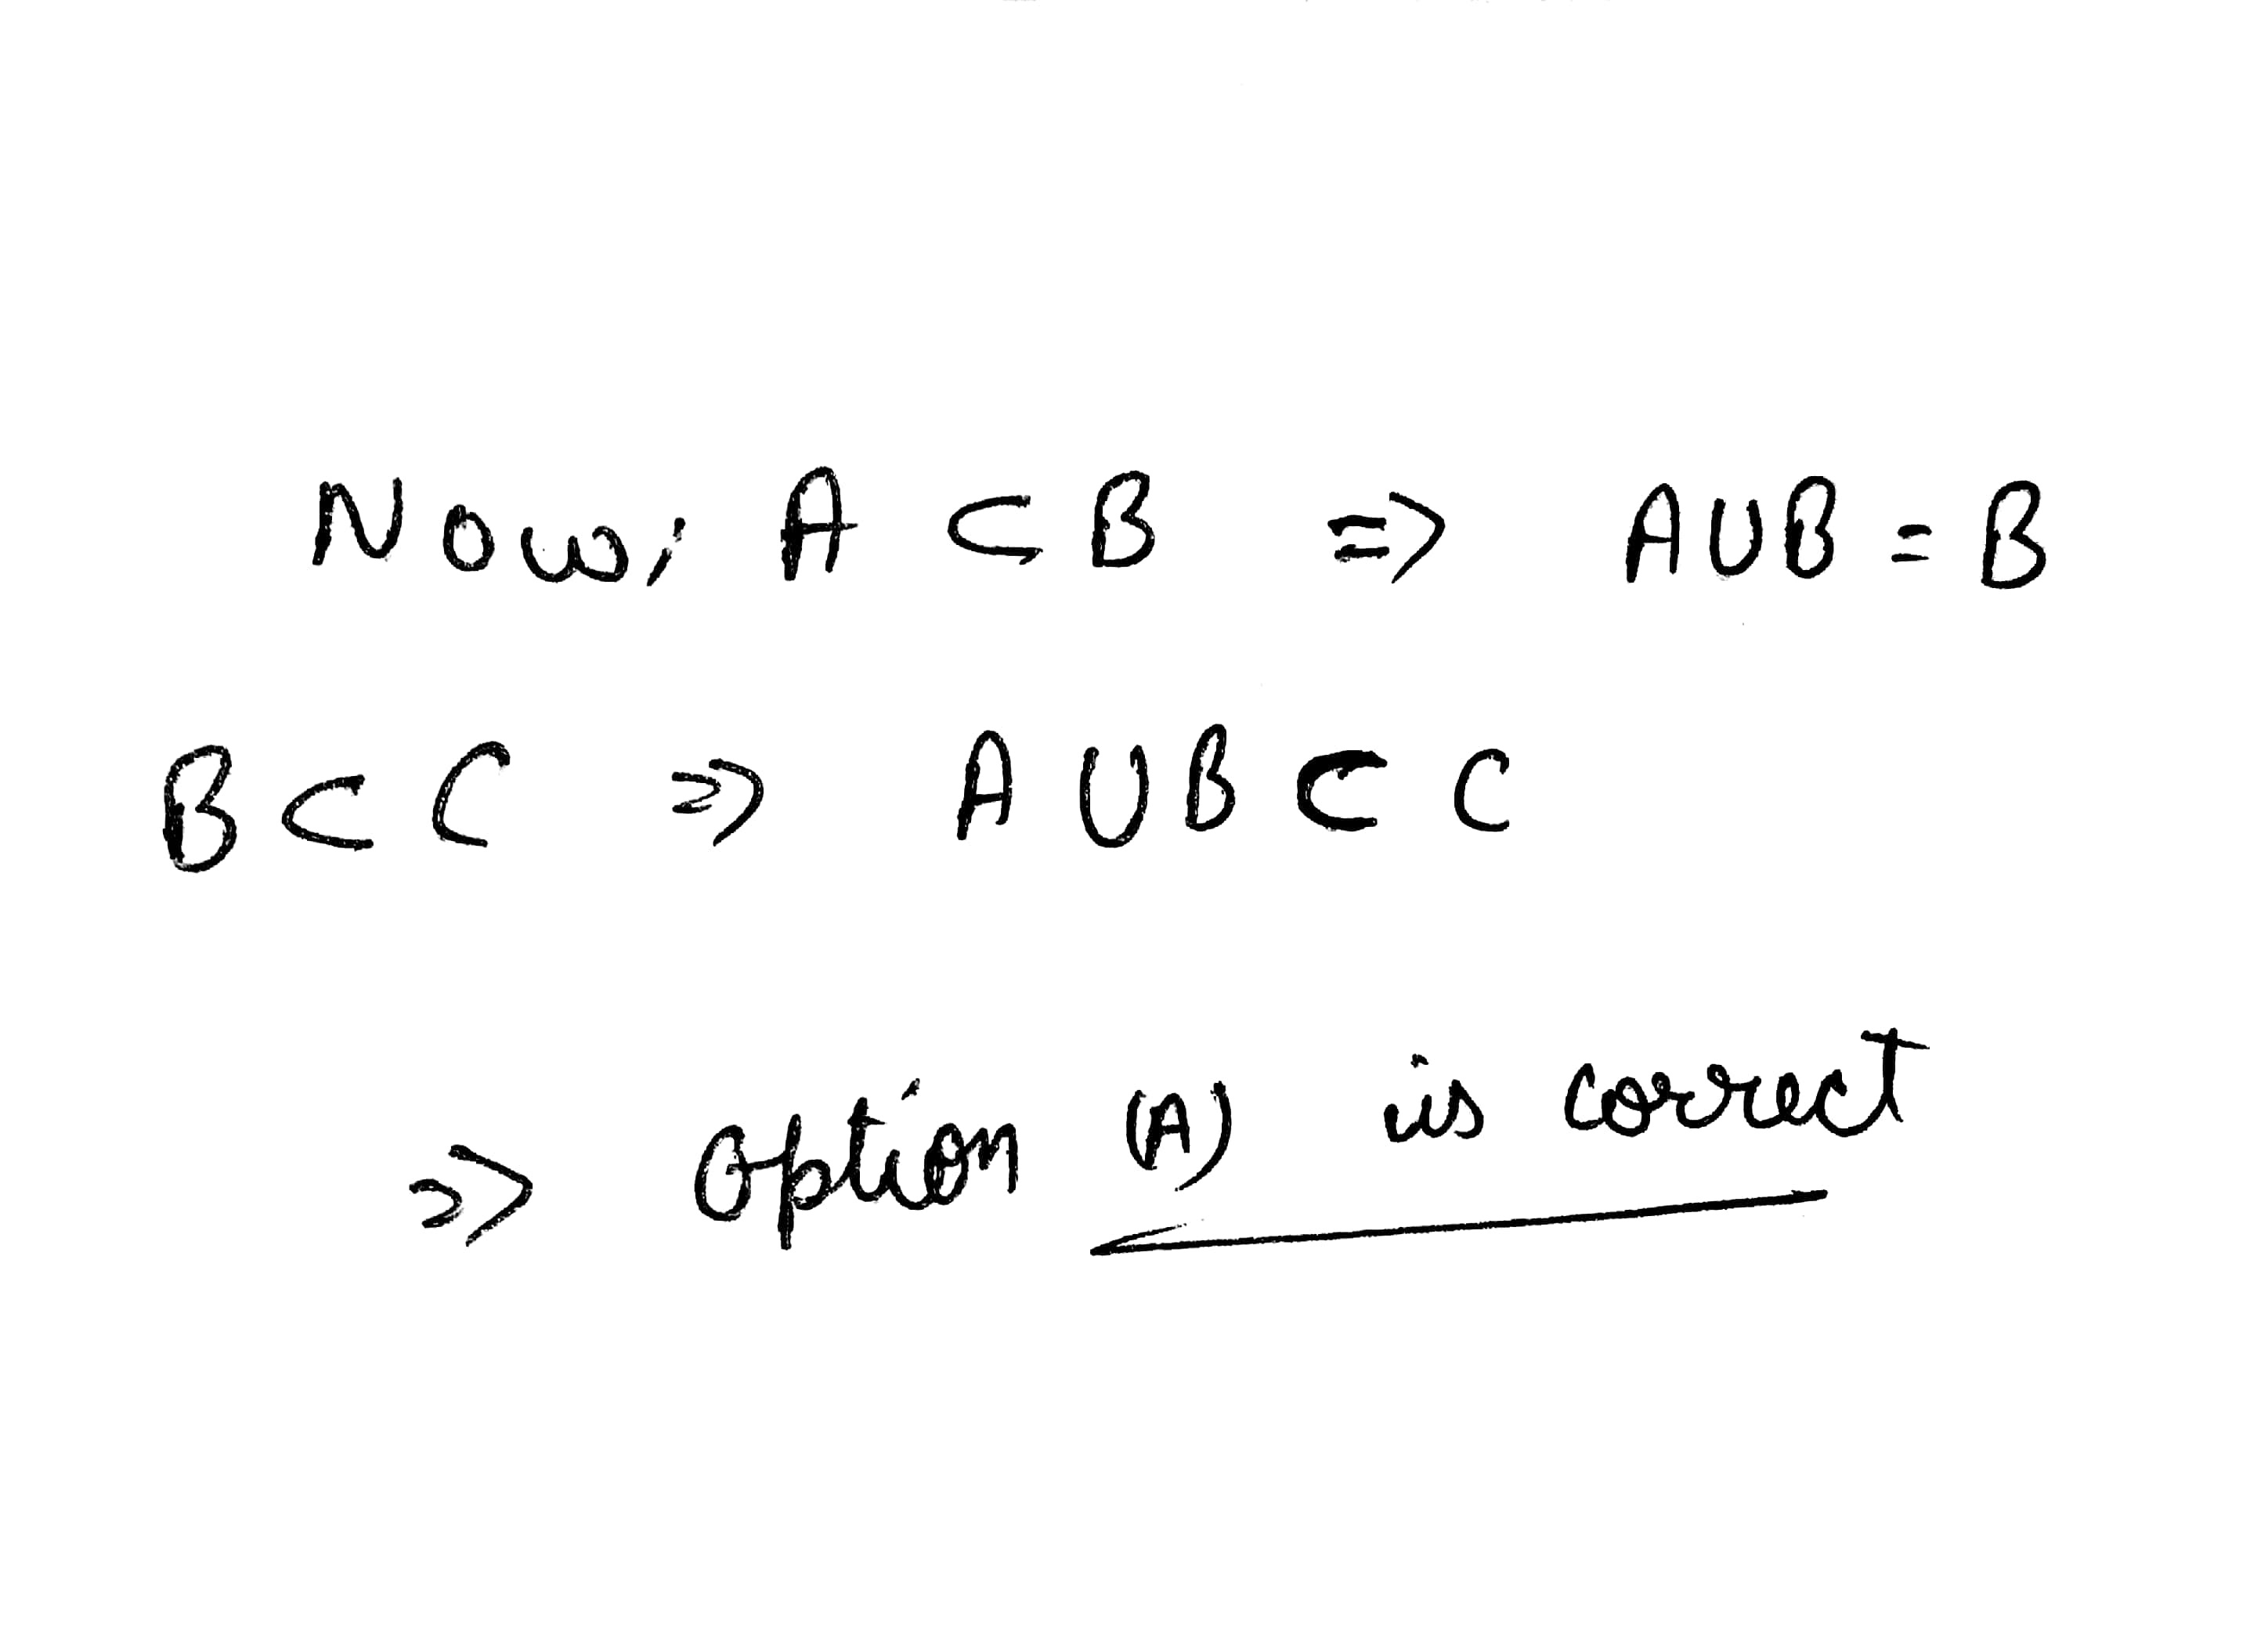 Now, A ⊂ B ⇒ A∪B = B
B ⊂ C ⇒ A ∪ B ⊂ C
⇒ Option (A) is correct